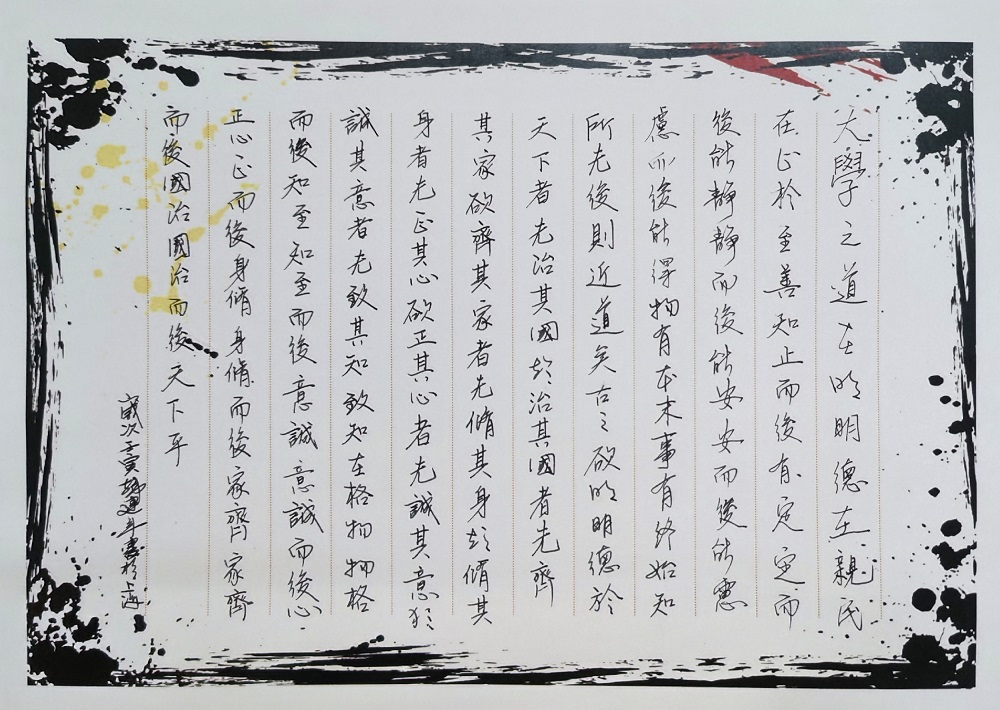 大學之道在明明德在親民
在止於至善知止而後有定定而
後能静静而後能安安而後能慮
慮而後能得物有本末事有終始知
所先後則近道矣古之欲明明德於
天下者先治其國欲治其國者先齊
其家欲齊其家者先脩其身欲脩其
身者先正其心欲正其心者先誠其意欲
誠其意者先致其知致知在格物物格
而後知至知至而後意誠意誠而後心
正心正而後身脩身脩而後家齊家齊
而後國治國治而後天下平
歲次壬寅書於上海